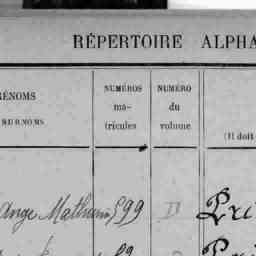 RÉPERTOIRE ALPHA
RÉNOMS
SURNOMS
NUMÉROS
ma-
tricules
NUMÉRO
du
volume
(Il doit
Ange Mathurin 599 D